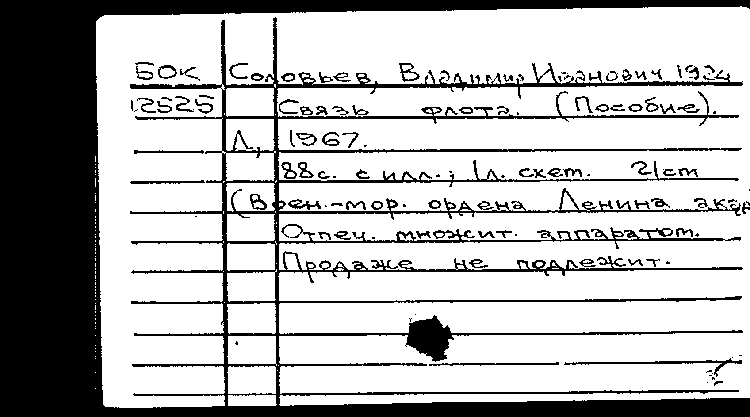 БОК Соловьев, Владимир Иванович 1924
12525 Связь флота. (Пособие).
Л., 1967.
88с. с илл.; 1л. схем. 21cm
(Воен.-мор. ордена Ленина акад
Отпеч. множит. аппаратом.
Продаже не подлежит.